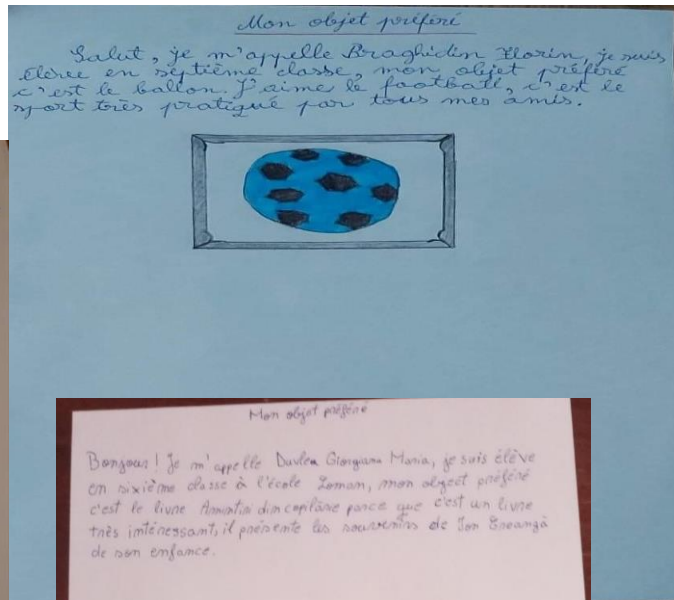 Mon objet préféré
Salut, je m'appelle Braghidin Florin, je suis
élève en séptième classe, mon objet préféré
c'est le ballon. J'aime le football, c'est le
sport très pratiqué par tous mes amis.
Mon objet préféré
Bonjour! Je m'appelle Maria, je suis élève
en sixième classe à l'école Loman, mon object préféré
c'est le livre Amintiri din copilărie parce que c'est un livre
très intéressant, il présente les souvenirs de Ion Creangă
de son enfance.